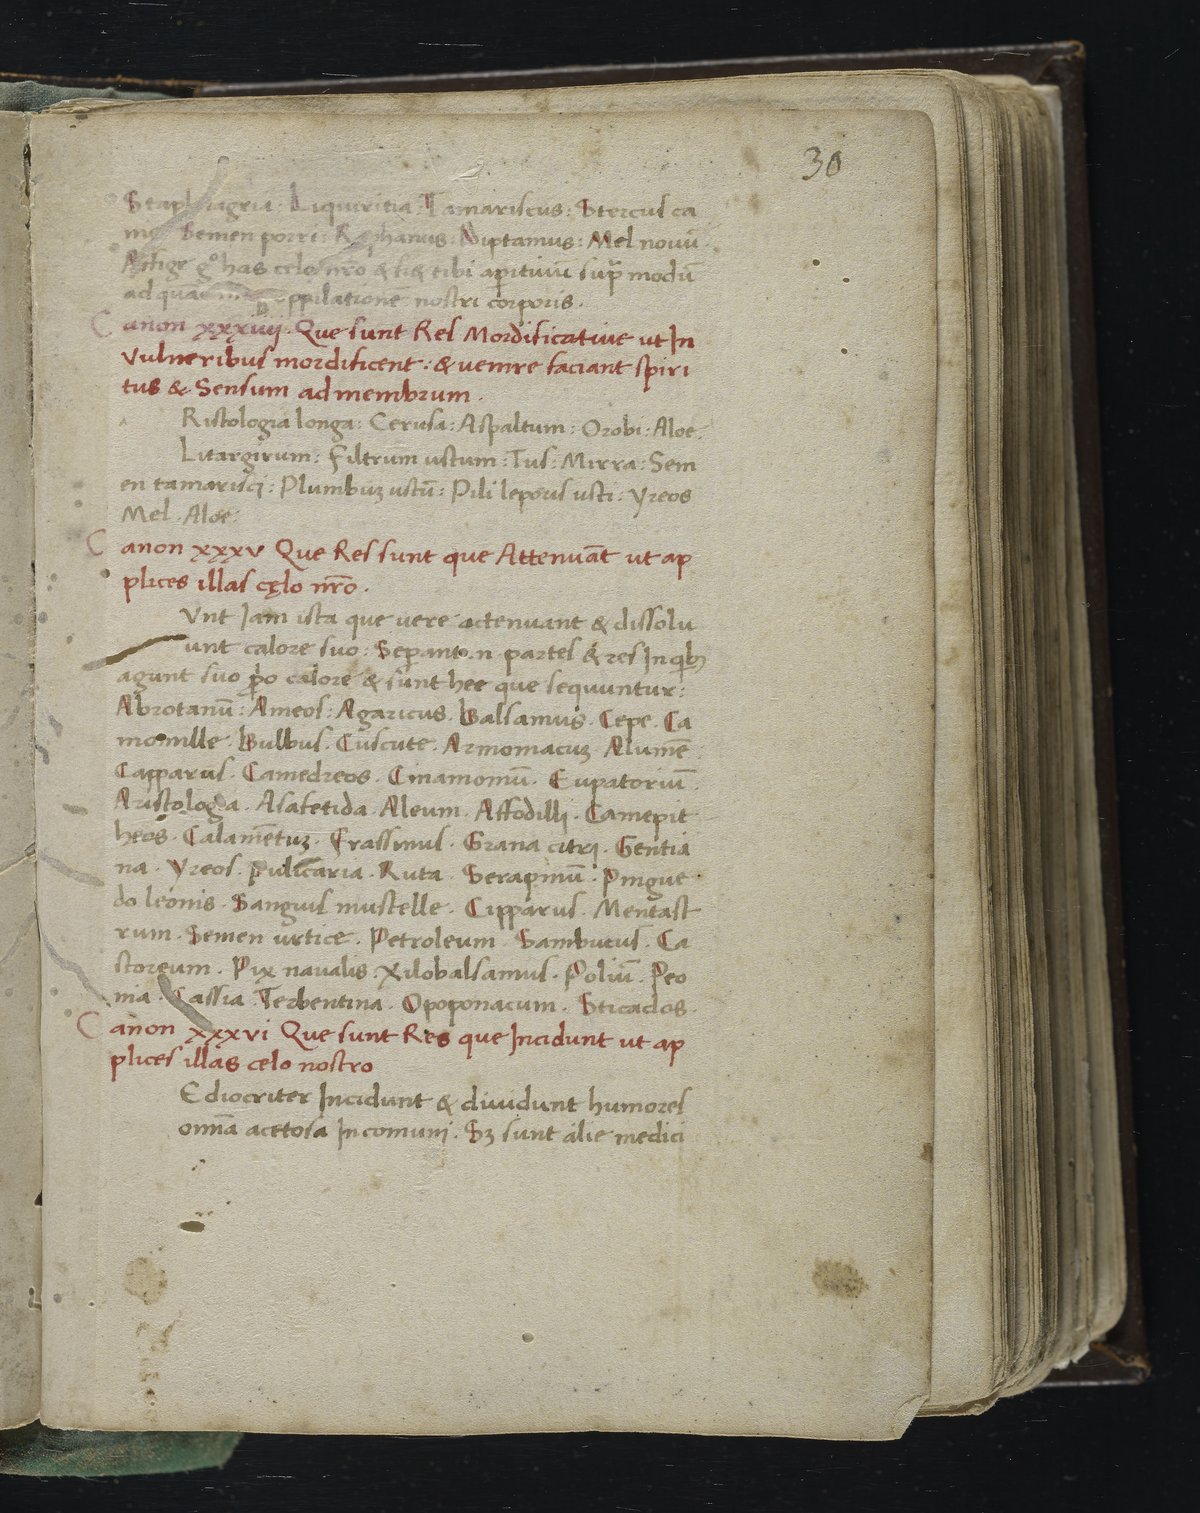 30
Staphisagria : Liquiritia : Tamariscus : Stercus ca
Semen porri : Raphanus : Diptamus : Mel nouū
has celo nr̄o & fi& tibi apitiuū sup̄ modū
ad oppilationē nostri corporis .
Canon xxxiiij . Que sunt Res Mordificatiue ut In
Vulneribus mordificent : & uenire faciant spiri
tus & Sensum ad membrum .
Ristologia longa : Cerusa : Aspaltum : Orobi : Aloe .
Litargirum : Filtrum ustum : Tus : Mirra : Sem
en tamarisci : Plumbuꝫ ustū : Pili leporis usti : Yreos
Mel . Aloe .
Canon xxxv Que Res sunt que Attenuāt ut ap
plices illas cęlo nr̄o .
Vnt Jam ista que uere actenuant & dissolu
unt calore suo : Separanto .n. partes & res In qbꝫ
agunt suo p̄o calore & sunt hec que sequuntur :
Abrotanū : Ameos : Agaricus . Balsamus . Cepe . Ca
momille . Bulbus . Cuscute . Armoniacuꝫ . Alumē .
Capparus . Camedreos . Cinamomū . Eupatoriū .
Aristologa . Asafetida . Aleum . Affodilli . Camepit
heos . Calamētuꝫ . Crassinus . Grana citri . Gentia
na . Yreos . Pulicaria . Ruta . Serapinū . Pingue
do leonis . Sanguis mustelle . Cipparus . Mentast
rum . Semen urtice . Petroleum . Sambucus . Ca
storeum . Pix naualis . Xilobalsamus . Poliū . Peo
nia . Cassia . Terbentina . Opoponacum . Sticados .
Canon xxxvi Que sunt Res que Incidunt ut ap
plices illas celo nostro
Ediocriter Incidunt & diuidunt humores
om̄a acetosa In comuni . Sꝫ sunt alie medici